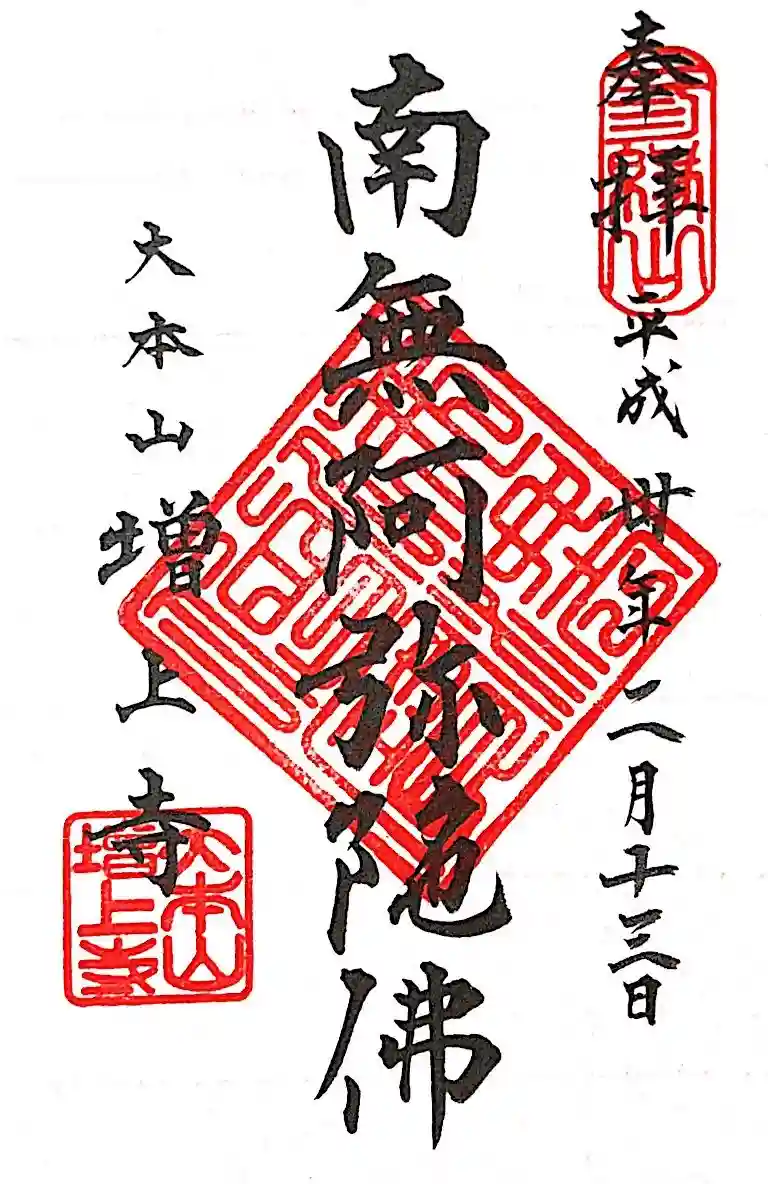 奉拝
平成卅年二月十三日
南無阿弥陀佛
大本山
増上寺
大本山
増上寺